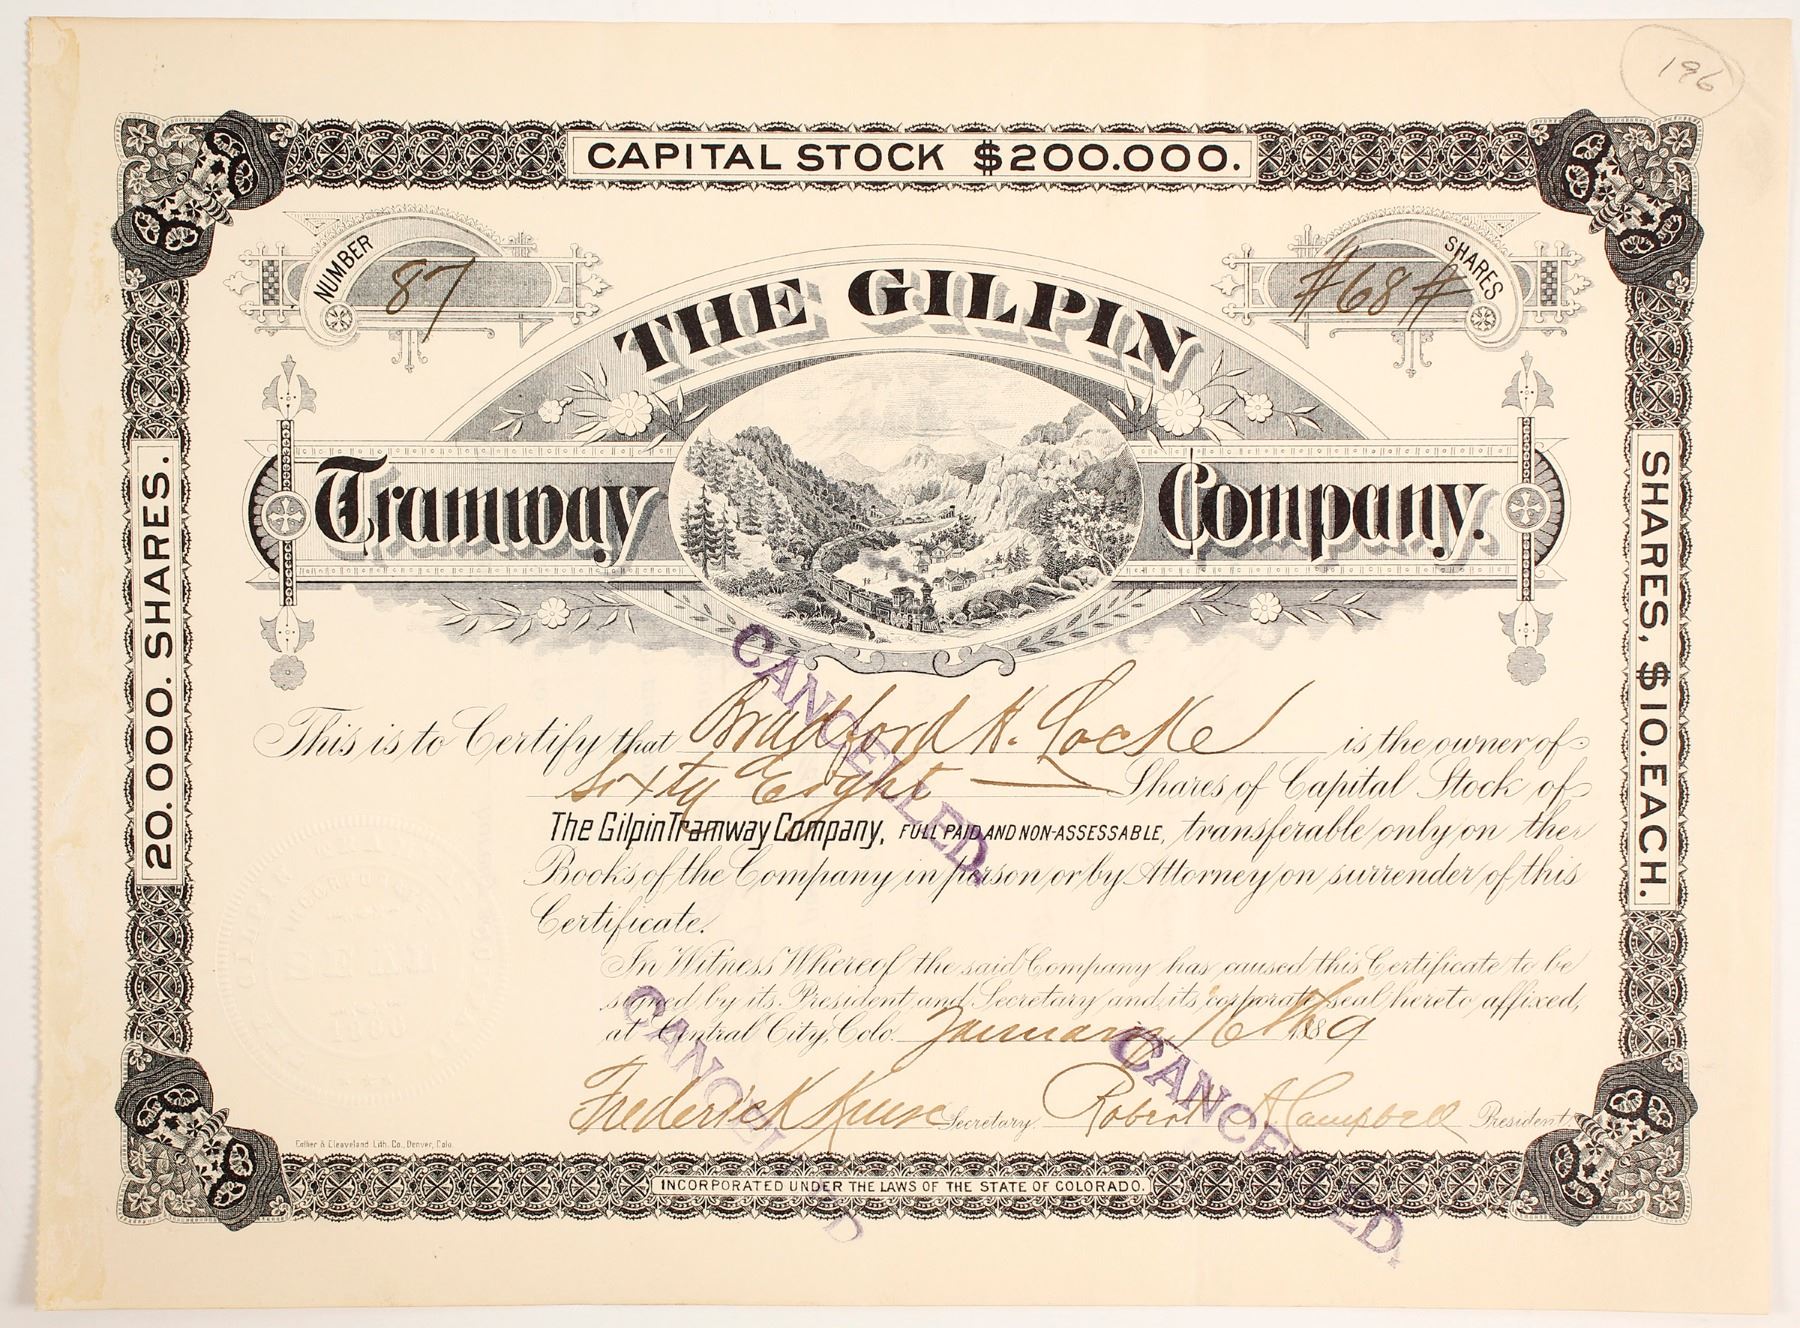 196
CAPITAL STOCK $200.000.
NUMBER 87
#68# SHARES
THE GILPIN
Tramway Company.
20.000. SHARES.
SHARES, $10. EACH.
This is to Certify that Bradford H. Locke is the owner of
Sixty Eight Shares of Capital Stock of
The Gilpin Tramway Company, FULL PAID AND NON-ASSESSABLE, transferable only on the
Books of the Company in person or by Attorney on surrender of this
Certificate.
In Witness Whereof the said Company has caused this Certificate to be
signed by its President and Secretary and its corporate seal hereto affixed,
at Central City, Colo. January 16th 1889
Frederick Kruse Secretary. Robert A. Campbell President.
CANCELLED.
CANCELLED
CANCELLED.
SEAL
Collier & Cleaveland Lith. Co., Denver, Colo.
INCORPORATED UNDER THE LAWS OF THE STATE OF COLORADO.